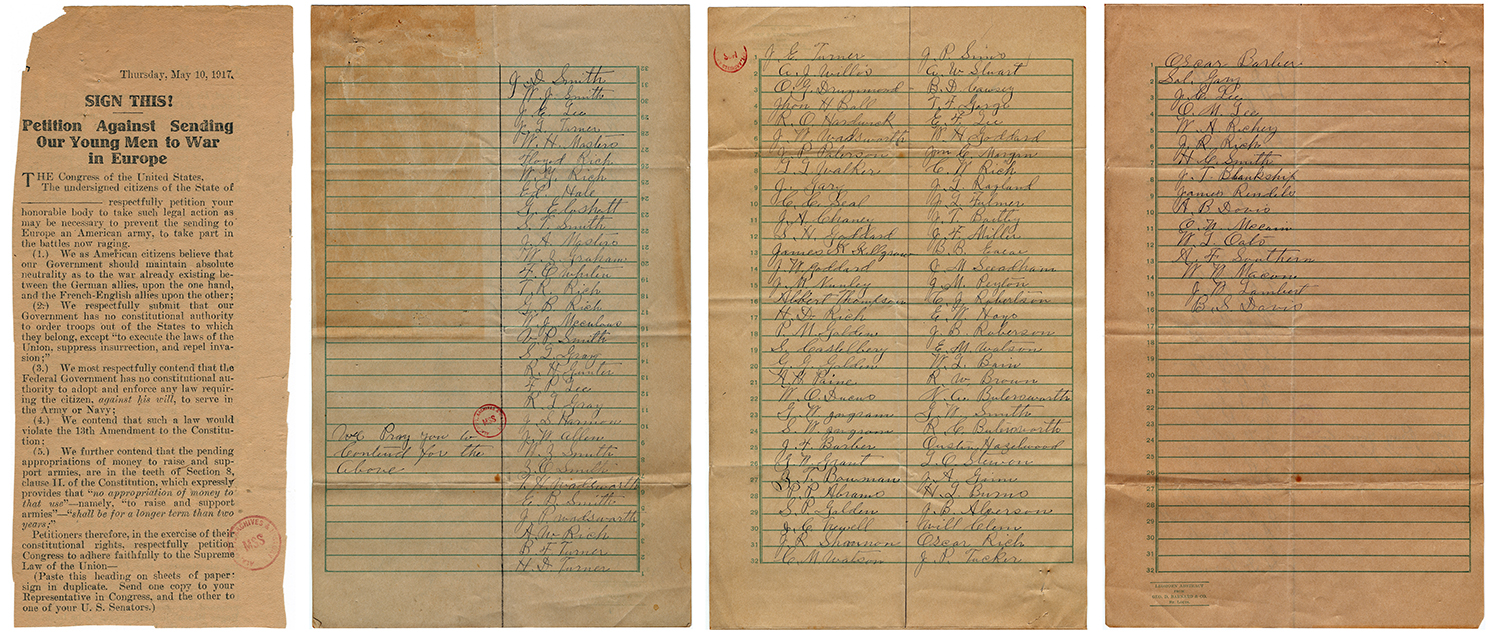 Thursday, May 10, 1917.
SIGN THIS!
Petition Against Sending
Our Young Men to War
in Europe
THE Congress of the United States.
The undersigned citizens of the State of
respectfully petition your
honorable body to take such legal action as
may be necessary to prevent the sending to
Europe an American army, to take part in
the battles now raging.
(1.) We as American citizens believe that
our Government should maintain absolute
neutrality as to the war already existing be-
tween the German allies, upon the one hand,
and the French-English allies upon the other;
(2.) We respectfully submit that our
Government has no constitutional authority
to order troops out of the States to which
they belong, except "to execute the laws of the
Union, suppress insurrection, and repel inva-
sion;"
(3.) We most respectfully contend that the
Federal Government has no constitutional au-
thority to adopt and enforce any law requir-
ing the citizen, against his will, to serve in
the Army or Navy;
(4.) We contend that such a law would
violate the 13th Amendment to the Constitu-
tion;
(5.) We further contend that the pending
appropriations of money to raise and sup-
port armies, are in the teeth of Section 8,
clause II. of the Constitution, which expressly
provides that "no appropriation of money to
that use"—namely, "to raise and support
armies"—"shall be for a longer term than two
years;"
Petitioners therefore, in the exercise of their
constitutional rights, respectfully petition
Congress to adhere faithfully to the Supreme
Law of the Union—
(Paste this heading on sheets of paper:
sign in duplicate. Send one copy to your
Representative in Congress, and the other to
one of your U. S. Senators.)
MSS
J. D. Smith
W. J. Smith
J. E. Lee
J. L. Turner
W. H. Masters
Floyd Rich
W. Y. Rich
Ed Hale
S. T. Smith
J. A. Masters
W. J. Graham
T. R. Rich
G. R. Rich
W. P. Smith
S. L. Gray
R. H. Gunter
F. P. Lee
R. L. Gray
J. S. Harmon
J. W. Allen
W. Z. Smith
Z. O. Smith
E. B. Smith
J. P. Wadsworth
A. W. Rich
B. F. Turner
H. D. Turner
We Pray you to
Contend for the
Above
MSS
J. E. Turner J. P. Sims
A. J. Willis C. W. Stuart
O. G. Drummond B. D. Causey
Jhon H Ball T. F. Gary
R. O. Hardwick E. F. Lee
J. W. Wadsworth W. H. Goddard
J. P. Peterson Jm C. Morgin
L. L. Walker C. W. Rich
J. Gary J. L. Ragland
C. C. Seal J. L. Fulmer
J. A. Chaney J. T. Bailey
S. H. Goddard J. F. Miller
James K Killgrow B. B.
J. W. Goddard J. M. Needham
J. M. Nunley G. W. Peyton
Albert Thompson C. J. Robertson
H. D. Rich E. W. Hays
P. M. Golden J. B. Roberson
S. Castelberry E. M. Watson
C. J. Golden W. L. Bain
R. B. Paine R. W. Brown
W. O. Dacus H. A. Butersworth
G. W. Gargram G. W. Smith
S. W. Gargram R. C. Butersworth
J. F. Barber Oustin Hazelwood
G. W. Grant L. C.
J. T. Bowman J. A. Sims
P. P. Abrams H. L. Burns
S. P. Golden J. B. Alperson
J. C. Newell Will Clem
J. R. Shannon Oscar Rich
C. M. Watson J. P. Tucker
Oscar Barber
Sol. Gary
J. C. Lee
O. M. Lee
W. A. Richey
J. R. Rich
H. C. Smith
J. T. Blankship
James Rendile
A. B. Davis
C. M. Mccain
W. L. Oats
A. F. Southern
W. N. Macon
J. W. Lambert
B. S. Davis